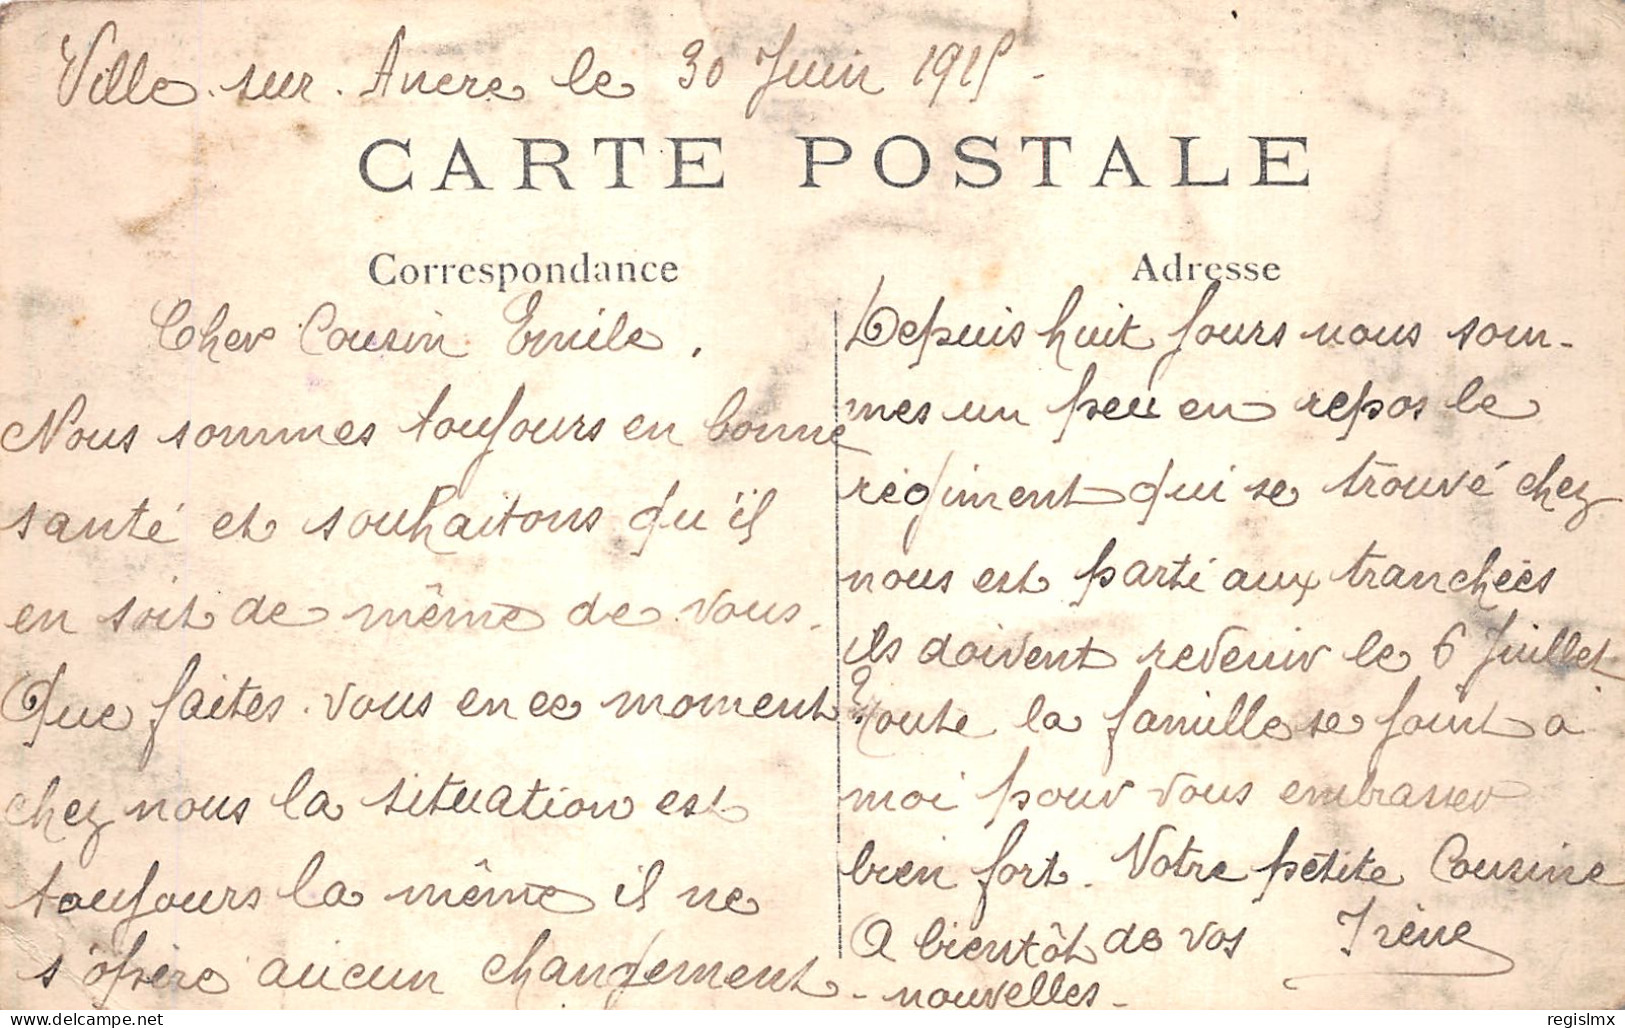 Ville sur Ancre le 30 Juin 1915 -
CARTE POSTALE
Correspondance
Cher Cousin Emile.
Nous sommes toujours en bonne
santé et souhaitons qu'il
en soit de même de vous.
Que faites-vous en ce moment ?
chez nous la situation est
toujours la même il ne
s'opère aucun changement -
Adresse
Depuis huit jours nous som-
mes un peu en repos le
régiment qui se trouvé chez
nous est parti aux tranchées
ils doivent revenir le 6 Juillet
Toute la famille se joint à
moi pour vous embrasser
bien fort. Votre petite Cousine
A bientôt de vos Irène
nouvelles -
regislmx